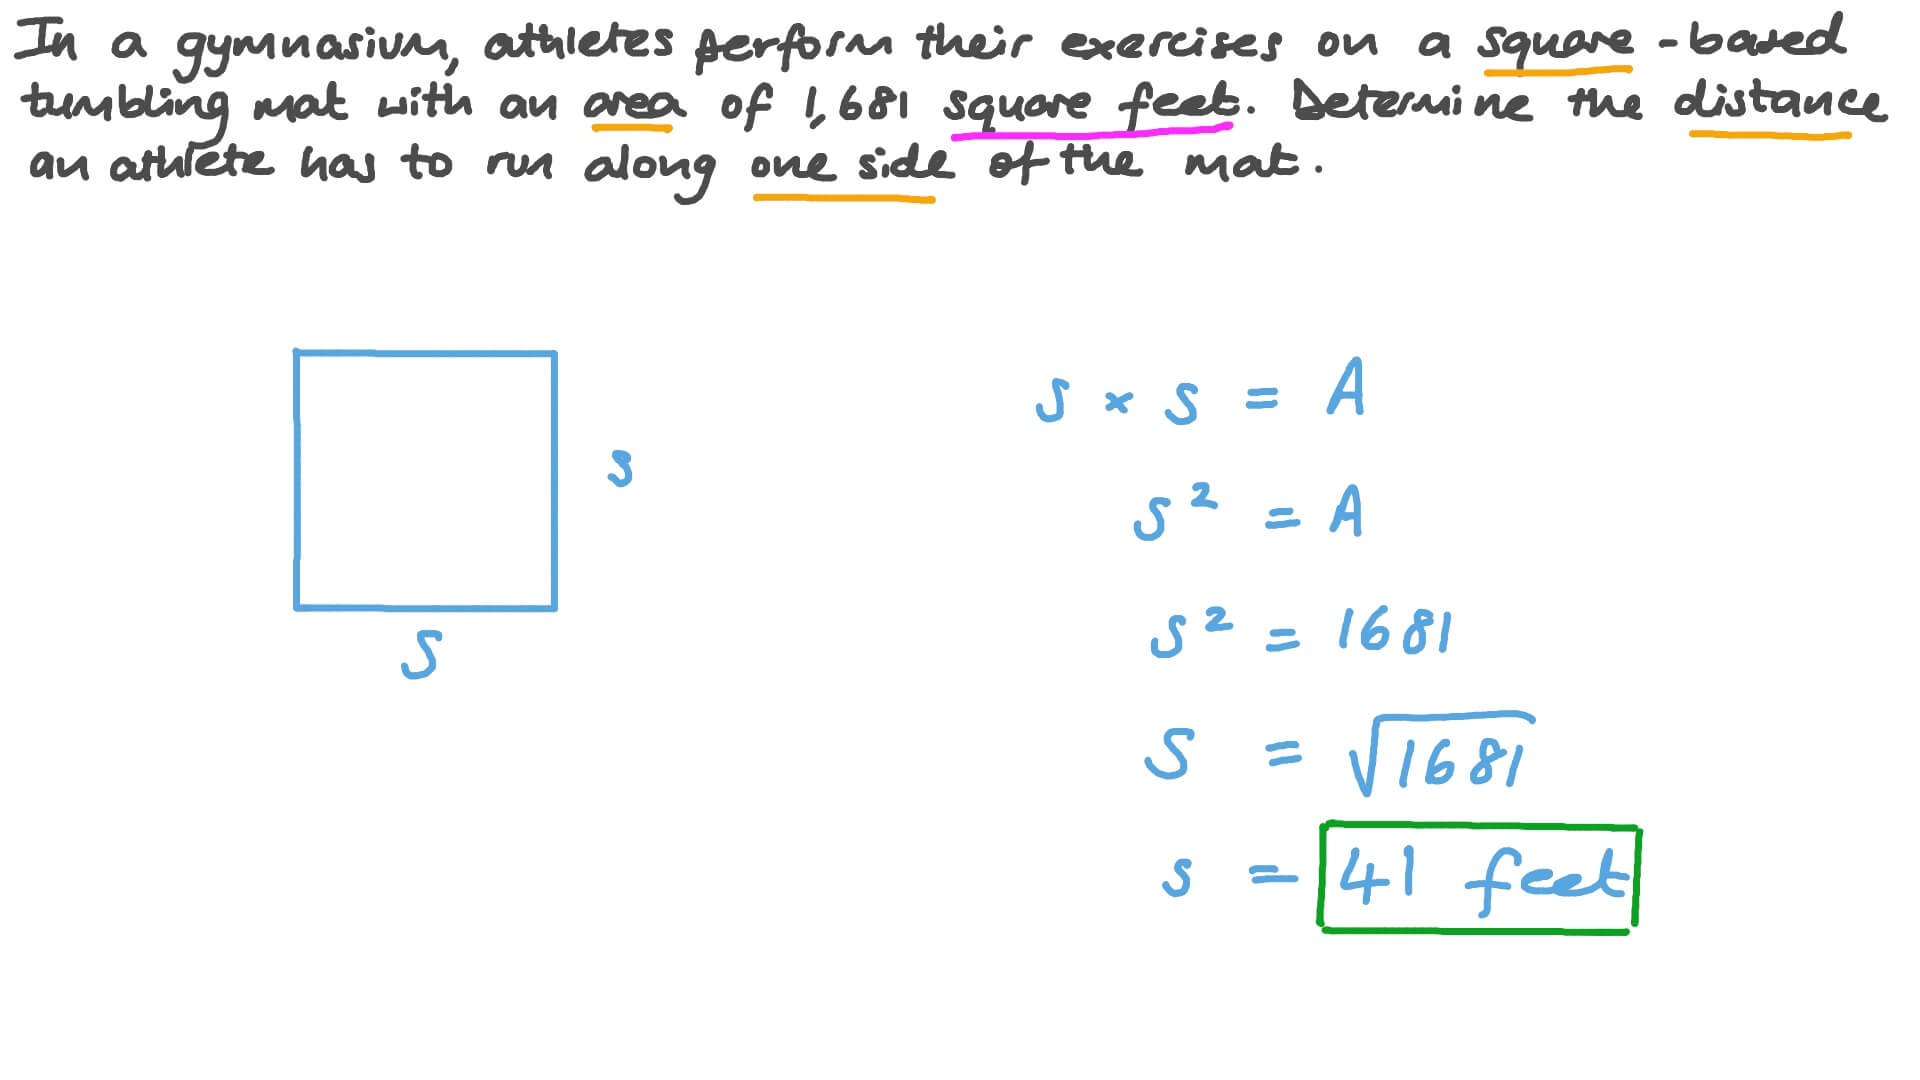 In a gymnasium, athletes perform their exercises on a square-based
tumbling mat with an area of 1,681 square feet. Determine the distance
an athlete has to run along one side of the mat.
s × s = A
s
s² = A
s² = 1681
s
s = √1681
s = 41 feet